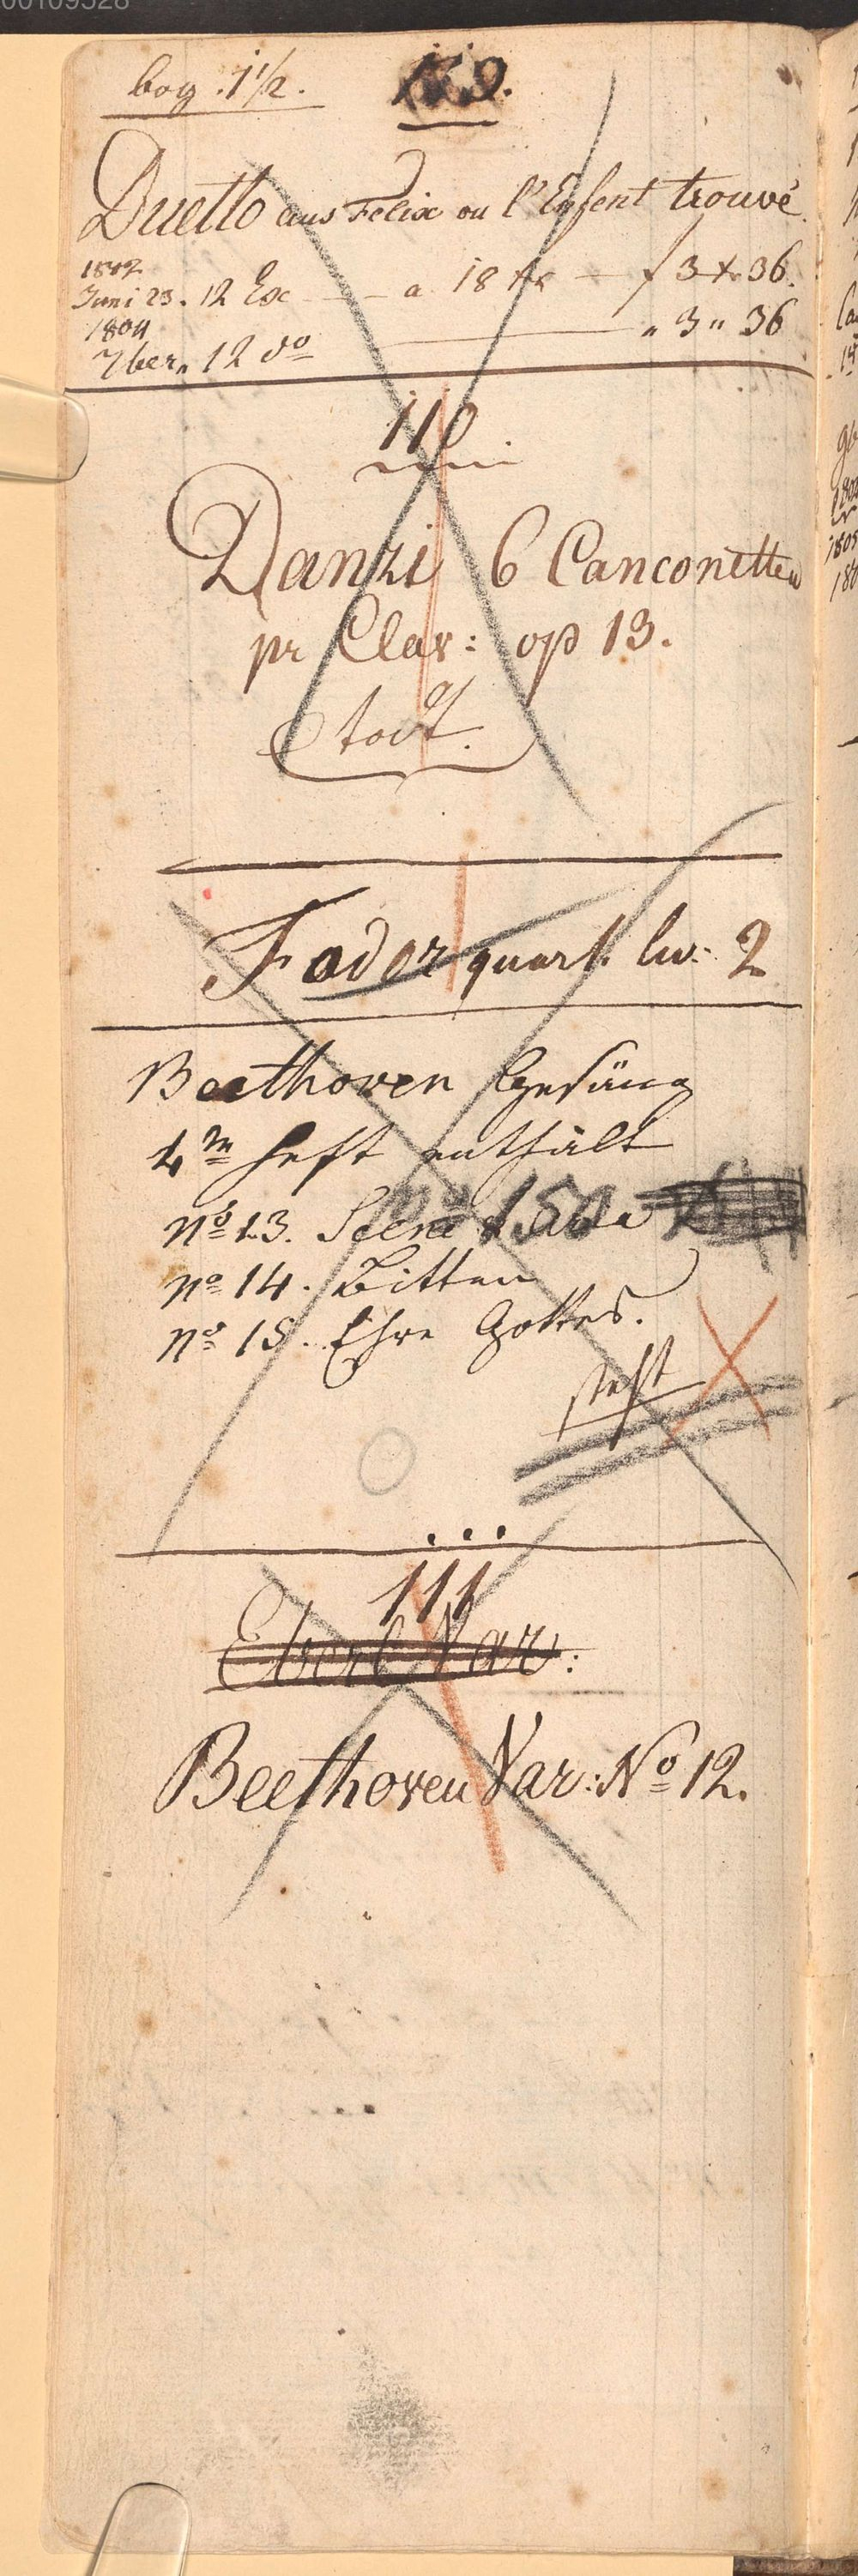 00109528
bog. 1 1/2.
Duetto aus Felix ou l'Enfent trouvé.
1802
Juni 23. 12 Ex — a 18 Xr — f 3 Xr 36.
1804
7ber„ 12 do — „ 3 „ 36
110
Danzi 6 Canconetten
pr Clav: op 13.
todt.
Fodor quart. liv: 2
Beethoven Gesäng
4te Heft enthält
no 13. Scene
150
no 14. Bitten
no 15. Ehre Gottes.
steht
111
Eberl Var:
Beethoven Var: No 12.